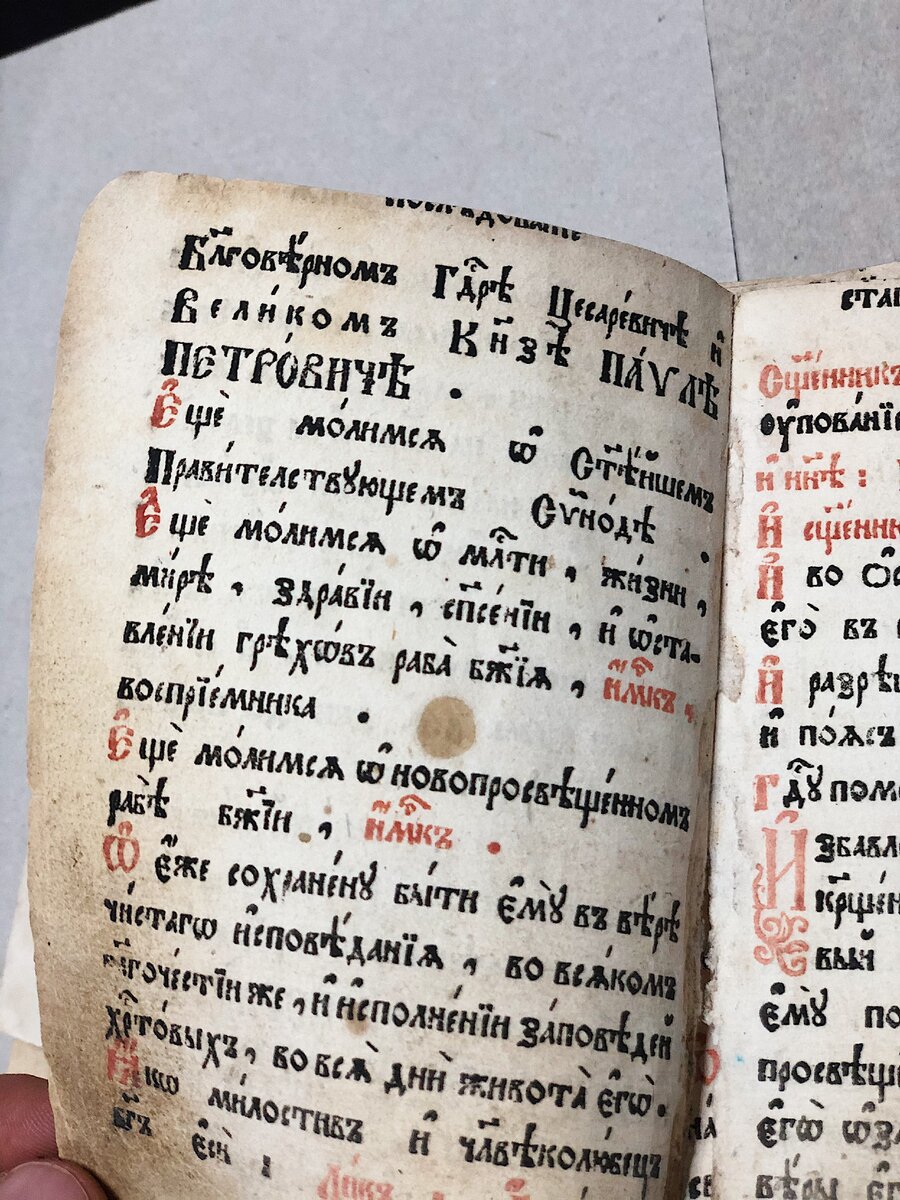 послѣдованїе
Бл҃говѣ́рномъ Гдⷭ҇рѣ Цесаре́вичѣ и҆
Вели́комъ Кн҃зѣ ПА́ѴЛѢ
ПЕТРО́ВИЧѢ .
Е҆щѐ мо́лимсѧ ѡ҆ Ст҃ѣ́йшемъ
Прави́телствꙋющемъ Сѷно́дѣ .
Е҆щѐ мо́лимсѧ ѡ҆ млⷭ҇ти , жи́зни ,
ми́рѣ , здра́вїи , сп҃се́нїи , и҆ ѡ҆ста-
вле́нїи грѣхѡ́въ раба̀ бж҃їѧ , и҆мⷬ҇къ ,
воспрїе́мника .
Е҆щѐ мо́лимсѧ ѡ҆ новопросвѣще́нномъ
рабѣ̀ бж҃їи , и҆мⷬ҇къ .
Ѡ҆ е҆́же сохране́нꙋ бы́ти е҆мꙋ̀ въ вѣ́рѣ
чи́стагѡ и҆сповѣ́данїѧ , во всѧ́комъ
бл҃гоче́стїи же , и҆ и҆сполне́нїи за́повѣдей
хрⷭ҇то́выхъ , во всѧ̀ дни̑ живота̀ е҆гѡ̀ .
Ꙗ҆́кѡ ми́лостивъ и҆ чл҃вѣколю́бецъ
бг҃ъ є҆сѝ :
Ли́къ
ста
Сщ҃е́нникъ
оу҆пова́нїе
и҆ нн҃ѣ :
И҆ сщ҃е́нник
И҆ во
е҆гѡ̀ въ
И҆ разрѣ
и҆ по́ѧсъ
Гдⷭ҇ꙋ пом
И҆збавл
кр҃ще́н
вый
е҆мꙋ̀ по
просвѣщ
е҆гѡ̀
вѣ́ры